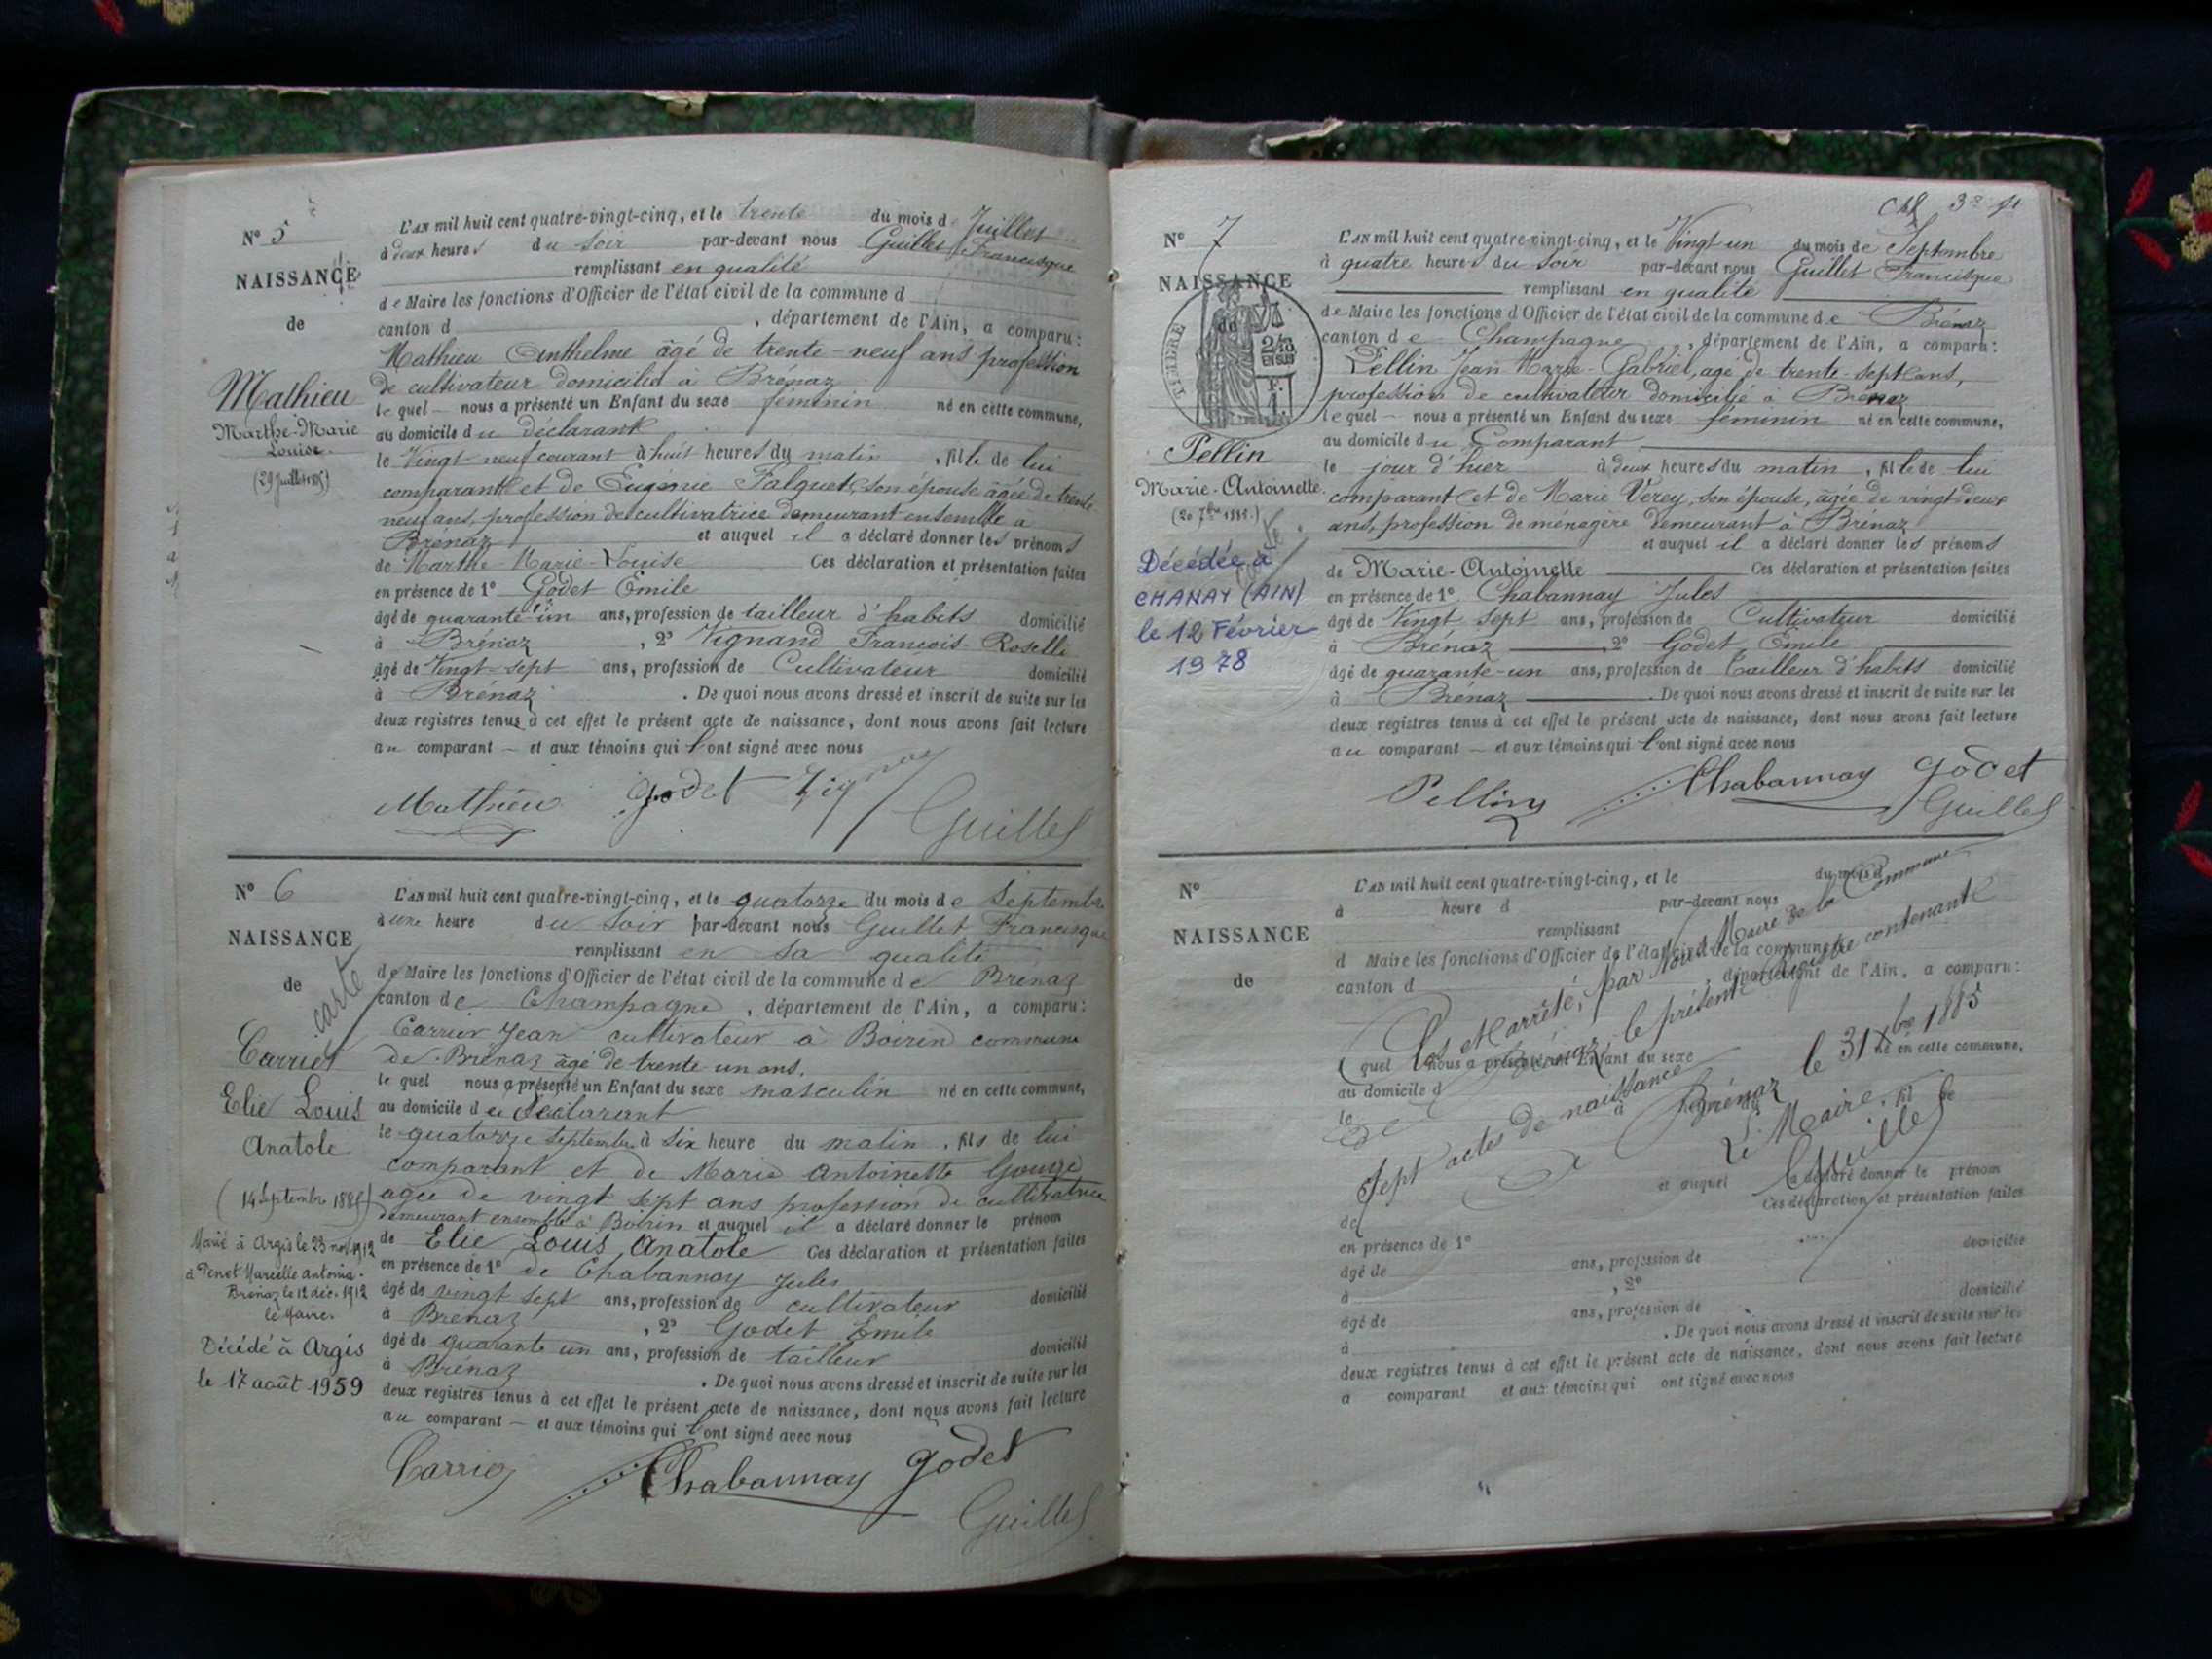 N° 5
NAISSANCE
de
Mathieu
Marthe-Marie
Louise.
(29 Juillet 1885)
L'AN mil huit cent quatre-vingt-cinq, et le trente du mois d Juillet
à deux heures du soir par-devant nous Guillet Francisque
remplissant en qualité
de Maire les fonctions d'Officier de l'état civil de la commune d
canton d , département de l'Ain, a comparu:
Mathieu Anthelme âgé de trente-neuf ans profession
de cultivateur domicilié à Brénaz
lequel — nous a présenté un Enfant du sexe féminin né en cette commune,
au domicile du déclarant
le Vingt neuf courant à huit heures du matin , fille de lui
comparant et de Eugénie Falquet, son épouse âgée de trente
neuf ans, profession de cultivatrice demeurant ensemble à
Brénaz et auquel il a déclaré donner les prénoms
de Marthe-Marie-Louise Ces déclaration et présentation faites
en présence de 1° Godet Emile
âgé de quarante-un ans, profession de tailleur d'habits domicilié
à Brénaz , 2° Vignand François-Roselli
âgé de Vingt-sept ans, profession de Cultivateur domicilié
à Brénaz . De quoi nous avons dressé et inscrit de suite sur les
deux registres tenus à cet effet le présent acte de naissance, dont nous avons fait lecture
au comparant — et aux témoins qui l'ont signé avec nous
Mathieu Godet
Guillet
N° 6
NAISSANCE
de
carte
Carrier
Elie Louis
Anatole
(14 Septembre 1885)
Marié à Argis le 23 nov 1912
à Penet Marcelle Antonia.
Brénaz le 12 déc. 1912
le Maire.
Décédé à Argis
le 17 août 1959
L'AN mil huit cent quatre-vingt-cinq, et le quatorze du mois de Septembre
à une heure du soir par-devant nous Guillet Francisque
remplissant en sa qualité
de Maire les fonctions d'Officier de l'état civil de la commune de Brénaz
canton de Champagne , département de l'Ain, a comparu:
Carrier Jean cultivateur à Boirin commune
de Brénaz âgé de trente un ans.
lequel nous a présenté un Enfant du sexe masculin né en cette commune,
au domicile du déclarant
le quatorze septembre à six heure du matin , fils de lui
comparant et de Marie Antoinette Gougé
agée de vingt sept ans profession de cultivatrice
demeurant ensemble à Boirin et auquel il a déclaré donner le prénom
de Elie Louis Anatole Ces déclaration et présentation faites
en présence de 1° de Chabannay Jules
âgé de vingt sept ans, profession de cultivateur domicilié
à Brénaz , 2° Godet Emile
âgé de quarante un ans, profession de tailleur domicilié
à Brénaz . De quoi nous avons dressé et inscrit de suite sur les
deux registres tenus à cet effet le présent acte de naissance, dont nous avons fait lecture
au comparant — et aux témoins qui l'ont signé avec nous
Carrier Chabannay Godet
Guillet
N° 7
NAISSANCE
de
TIMBRE
2/10
EN SUS
Pellin
Marie-Antoinette.
(20 7bre 1885.)
Décédée à
CHANAY (AIN)
le 12 Février
1978
L'AN mil huit cent quatre-vingt-cinq, et le Vingt un du mois de Septembre
à quatre heures du soir par-devant nous Guillet Francisque
remplissant en qualité
de Maire les fonctions d'Officier de l'état civil de la commune de Brénaz
canton de Champagne , département de l'Ain, a comparu:
Pellin Jean Marie-Gabriel, agé de trente-sept ans,
profession de cultivateur domicilié à Brénaz
lequel — nous a présenté un Enfant du sexe féminin né en cette commune,
au domicile du Comparant
le jour d'hier à deux heures du matin , fille de lui
comparant et de Marie Verey, son épouse, âgée de vingt-deux
ans, profession de ménagère demeurant à Brénaz
et auquel il a déclaré donner les prénoms
de Marie-Antoinette Ces déclaration et présentation faites
en présence de 1° Chabannay Jules
âgé de Vingt sept ans, profession de Cultivateur domicilié
à Brénaz , 2° Godet Emile
âgé de quarante-un ans, profession de tailleur d'habits domicilié
à Brénaz . De quoi nous avons dressé et inscrit de suite sur les
deux registres tenus à cet effet le présent acte de naissance, dont nous avons fait lecture
au comparant — et aux témoins qui l'ont signé avec nous
Pellin Chabannay Godet
Guillet
N°
NAISSANCE
de
L'AN mil huit cent quatre-vingt-cinq, et le du mois d
à heure d par-devant nous
remplissant
d Maire les fonctions d'Officier de l'état civil de la commune d
canton d , département de l'Ain, a comparu:
quel nous a présenté un Enfant du sexe né en cette commune,
au domicile d
le à heure d , fil de
et auquel a déclaré donner le prénom
de Ces déclaration et présentation faites
en présence de 1°
âgé de ans, profession de domicilié
à , 2°
âgé de ans, profession de domicilié
à . De quoi nous avons dressé et inscrit de suite sur les
deux registres tenus à cet effet le présent acte de naissance, dont nous avons fait lecture
a comparant et aux témoins qui ont signé avec nous
Clos et arrêté, par Nous Maire de la Commune
de Brénaz, le présent Registre contenant
Sept actes de naissance
à Brénaz le 31 Xbre 1885
Le Maire.
Guillet